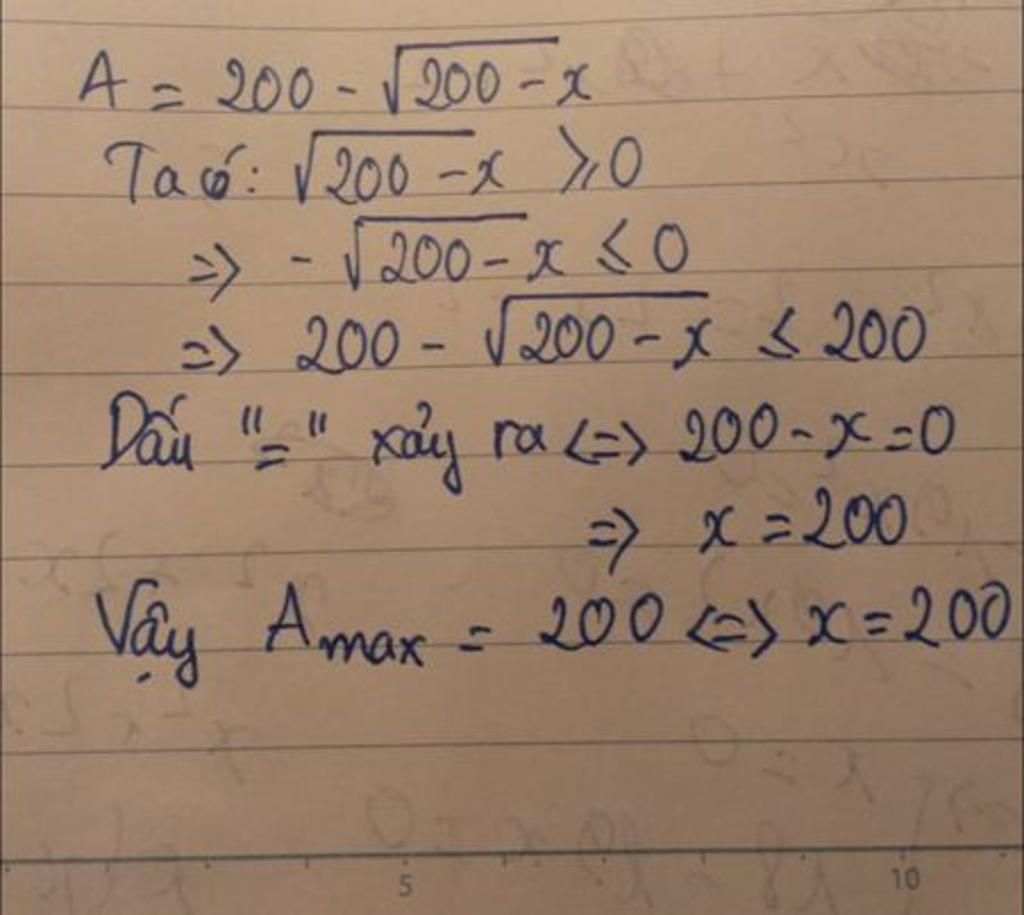 A = 200 - √200 - x
Ta có: √200 - x ⩾ 0
=> - √200 - x ≤ 0
=> 200 - √200 - x ≤ 200
Dấu "=" xảy ra <=> 200 - x = 0
=> x = 200
Vậy Amax = 200 <=> x = 200
5 10